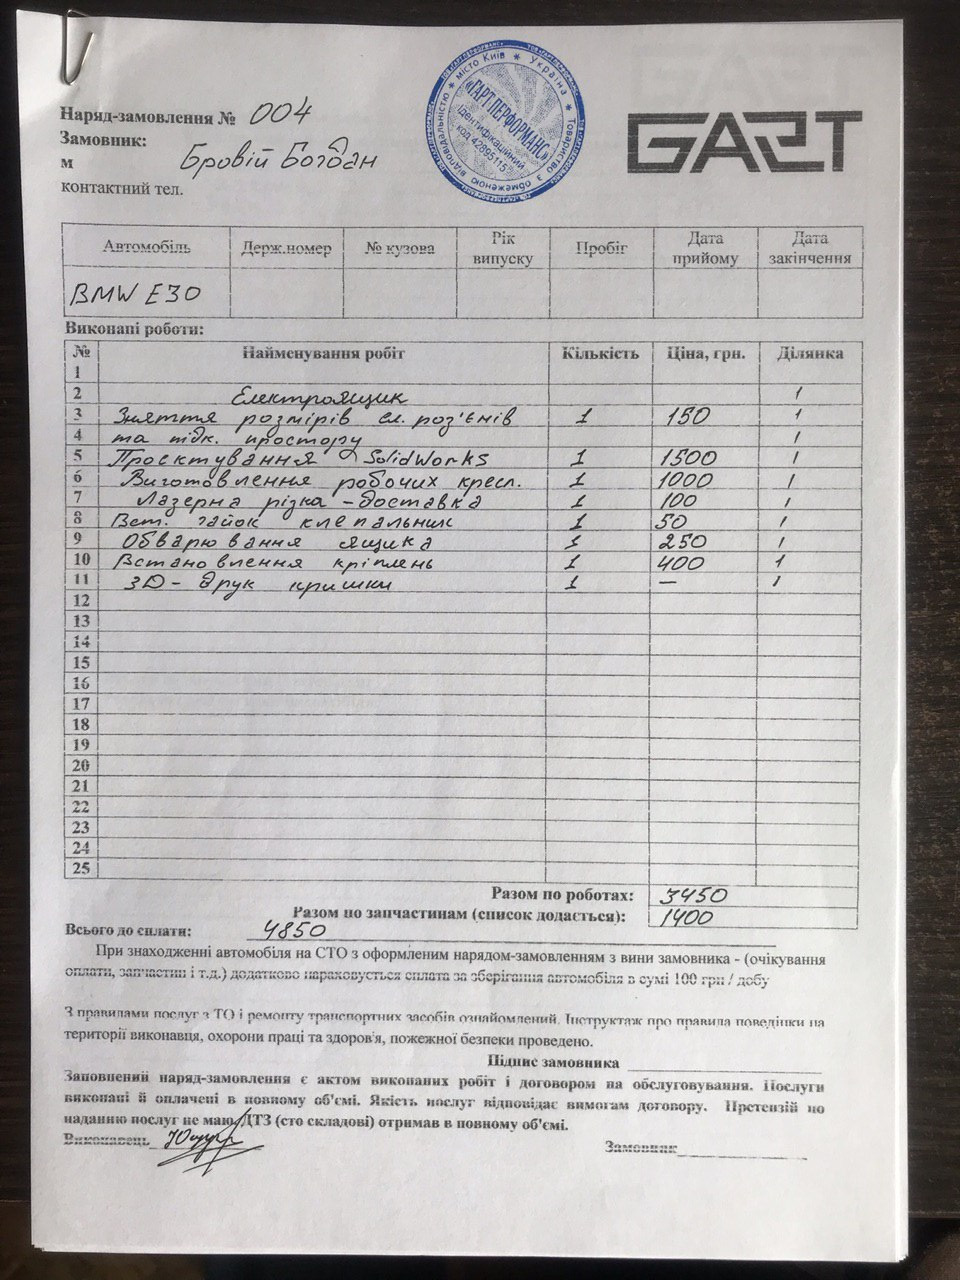 Наряд-замовлення № 004
Замовник:
м Бровій Богдан
контактний тел.
ТОВ «ГАРТ ПЕРФОРМАНС»
Україна * Товариство з обмеженою відповідальністю * місто Київ *
«ГАРТ ПЕРФОРМАНС»
Ідентифікаційний
код 42895115
GART
Автомобіль Держ.номер № кузова Рік випуску Пробіг Дата прийому Дата закінчення
BMW E30
Виконані роботи:
№ Найменування робіт Кількість Ціна, грн. Ділянка
1
2 Електроящик 1
3 Зняття розмірів ел. роз'ємів 1 150 1
4 та підк. простору 1
5 Проєктування SolidWorks 1 1500 1
6 Виготовлення робочих кресл. 1 1000 1
7 Лазерна різка - доставка 1 100 1
8 Вст. гайок клепальник 1 50 1
9 Обварювання ящика 1 250 1
10 Встановлення кріплень 1 400 1
11 3D - друк кришки 1 — 1
12
13
14
15
16
17
18
19
20
21
22
23
24
25
Разом по роботах: 3450
Разом по запчастинам (список додається): 1400
Всього до сплати: 4850
При знаходженні автомобіля на СТО з оформленим нарядом-замовленням з вини замовника - (очікування
оплати, запчастин і т.д.) додатково нараховується сплата за зберігання автомобіля в сумі 100 грн / добу
З правилами послуг з ТО і ремонту транспортних засобів ознайомлений. Інструктаж про правила поведінки на
території виконавця, охорони праці та здоров'я, пожежної безпеки проведено.
Підпис замовника
Заповнений наряд-замовлення є актом виконаних робіт і договором на обслуговування. Послуги
виконані й оплачені в повному об'ємі. Якість послуг відповідає вимогам договору. Претензій по
наданню послуг не маю/ДТЗ (сто складові) отримав в повному об'ємі.
Виконавець
Замовник